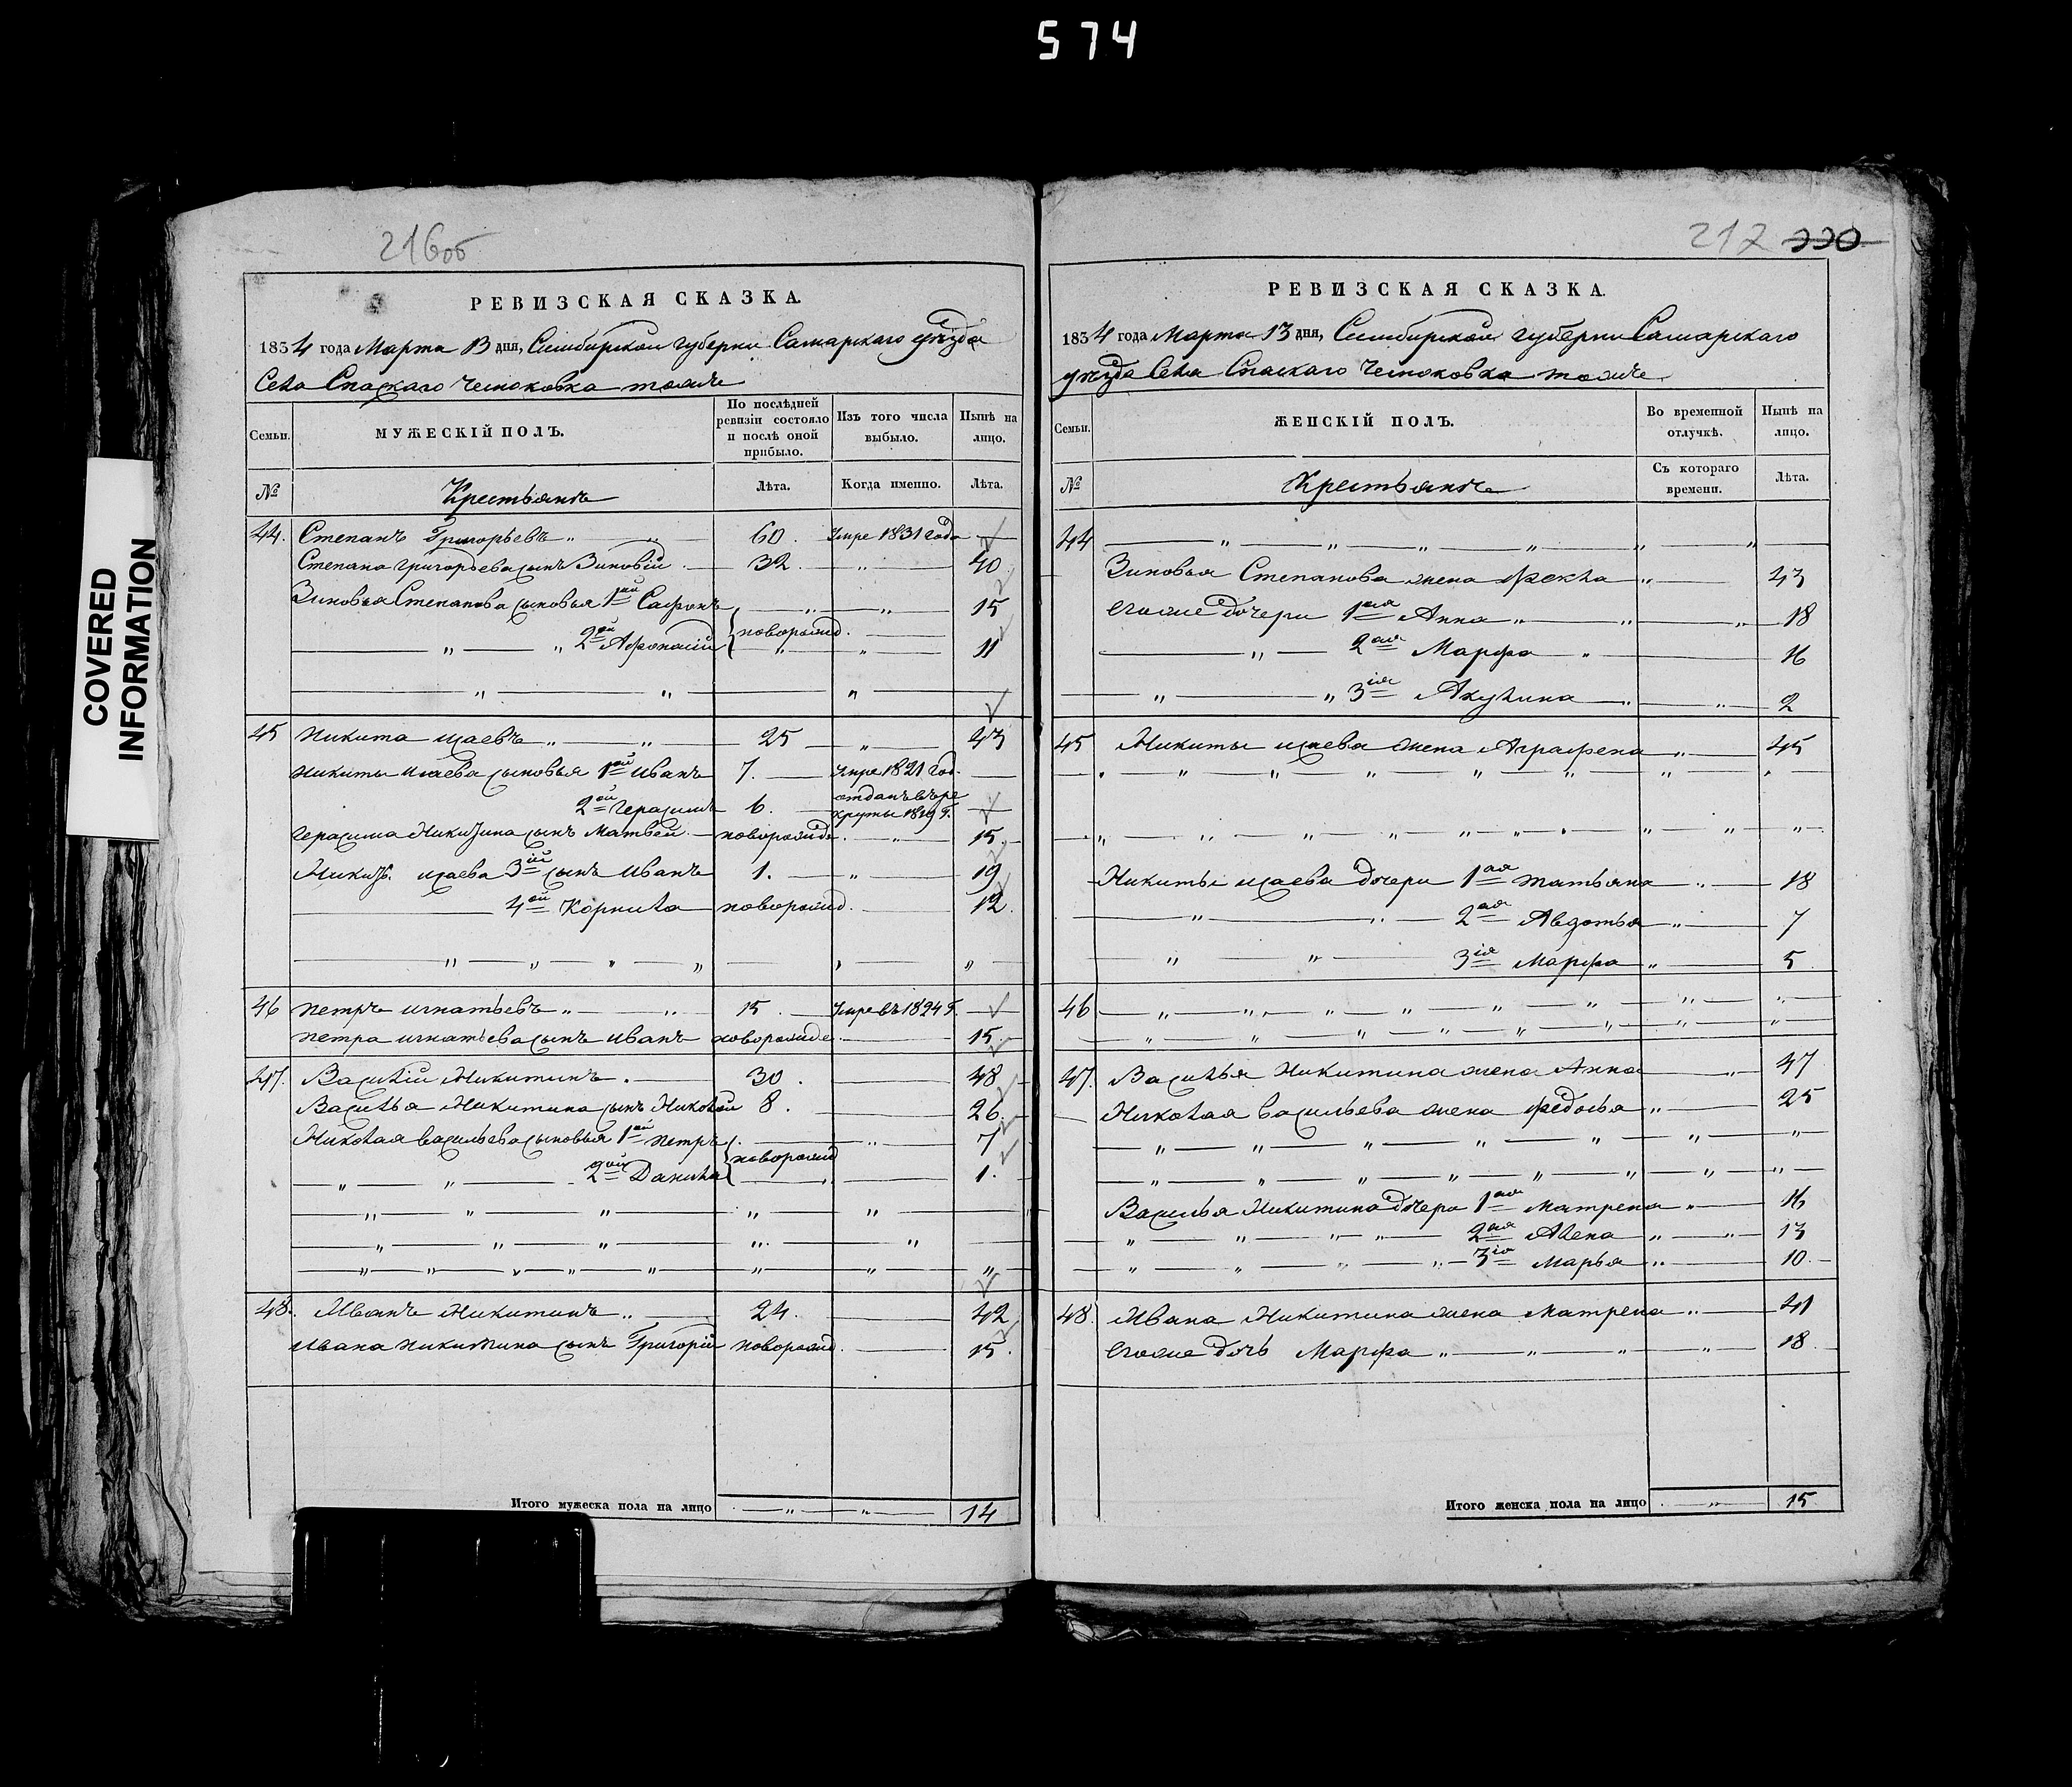 574
COVERED
INFORMATION
216об
РЕВИЗСКАЯ СКАЗКА.
1834 года Марта 13 дня, Симбирской губерни Самарскаго уѣзда
Села Спаскаго Чесноковка тоже
Семьи.
МУЖЕСКІЙ ПОЛЪ.
По послѣдней ревизіи состояло и послѣ оной прибыло.
Изъ того числа выбыло.
Нынѣ на лицо.
№
Крестьянъ
Лѣта.
Когда именно.
Лѣта.
44. Степанъ Григорьевъ „ „ 60. умре 1831 года
Степана Григорьева сынъ Зиновій 32. „ 40
Зиновья Степанова сыновья 1ый Сафонъ „ „ 15
„ „ 2ой Афонасій новорожд. „ „ 11
„ „ „
45 Никита исаевъ „ „ 25 „ 43
Никиты исаева сыновья 1ый иванъ 7. умре 1821 год.
2ой Герасимъ 6. отданъ въ ре
круты 1829 г.
Герасима Никитина сынъ Матвей новорожде. „ 15
Никит. исаева 3ій сынъ иванъ 1. „ 19
4ой Корнила новорожд. 12.
„ „ „ „ „ „
46 петръ игнатьевъ „ „ 15. умре въ 1824 г.
петра игнатьева сынъ иванъ новорожде. 15.
47. Василій Никитинъ. 30. 48
Василья Никитина сынъ Николай 8. 26.
Николая васильева сыновья 1ый петръ „ 7
„ „ 2ой Данила новорожд „ 1.
„ „ „ „ „
„ „ „ „ „
„ „ „ „ „ „ „ „
48. Иванъ Никитинъ „ 24. 42
Ивана никитина сынъ Григорій новорожд. 15.
Итого мужеска пола на лицо „ „ 14
217 220
РЕВИЗСКАЯ СКАЗКА.
1834 года Марта 13 дня, Симбирской губерни Самарскаго
уѣзда Села Спаскаго Чесноковка тоже
Семьи.
ЖЕНСКІЙ ПОЛЪ.
Во временной отлучкѣ.
Нынѣ на лицо.
№
Крестьянъ
Съ котораго времени.
Лѣта.
44 „ „ „ „ „ „
Зиновья Степанова жена Фекла „ 43
егоже дочери 1ая Анна „ „ „ 18
„ 2ая Марфа „ 16
„ „ 3ія Акулина „ „ 2
45 Никиты исаева жена Аграфена „ 45
„ „ „ „ „ „ „ „
„ „ „ „ „ „ „ „ „ „
Никиты исаева дочери 1ая татьяна „ 18
„ „ 2ая Авдотья „ 7
„ „ 3ія Марфа „ 5
46 „ „ „ „ „ „ „ „
„ „ „ „ „ „ „ „
47. Василья Никитина жена Анна „ 47
Николая васильева жена Федосья „ 25
„ „ „ „ „ „ „ „
„ „ „ „ „ „ „ „
Василья Никитина дочери 1ая матрена „ 16
„ „ „ „ 2ая Алена „ „ 13
„ „ „ „ 3ія марья „ 10
48. Ивана Никитина жена матрена „ 41
егоже дочь Марфа „ „ „ „ 18
Итого женска пола на лицо „ 15